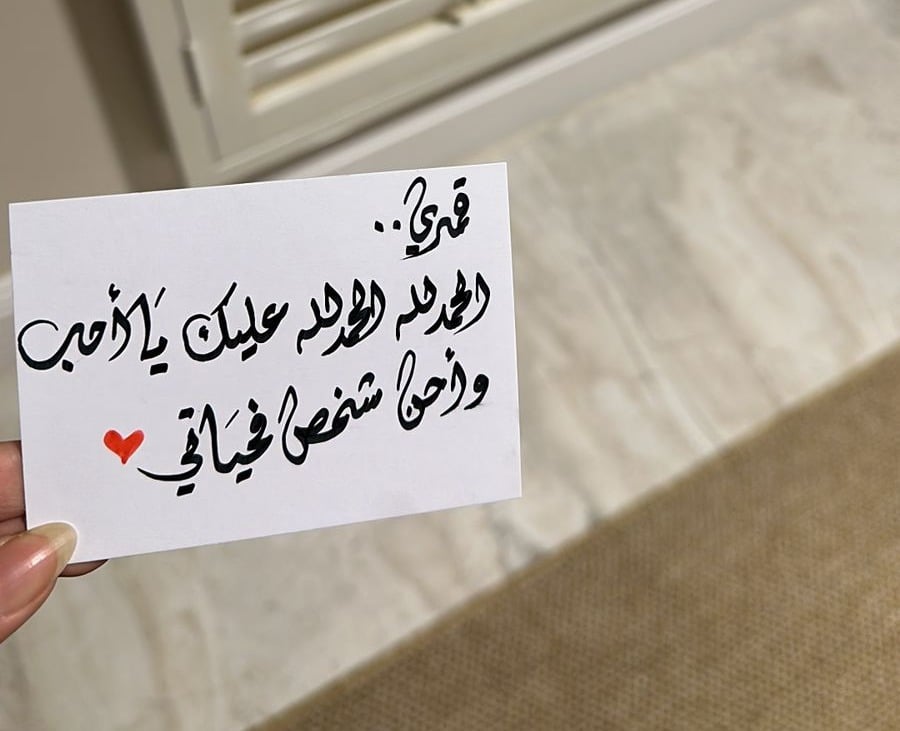 قمري..
الحمدلله الحمدلله عليك يَا أحب
وأحن شخص فحيَاتي